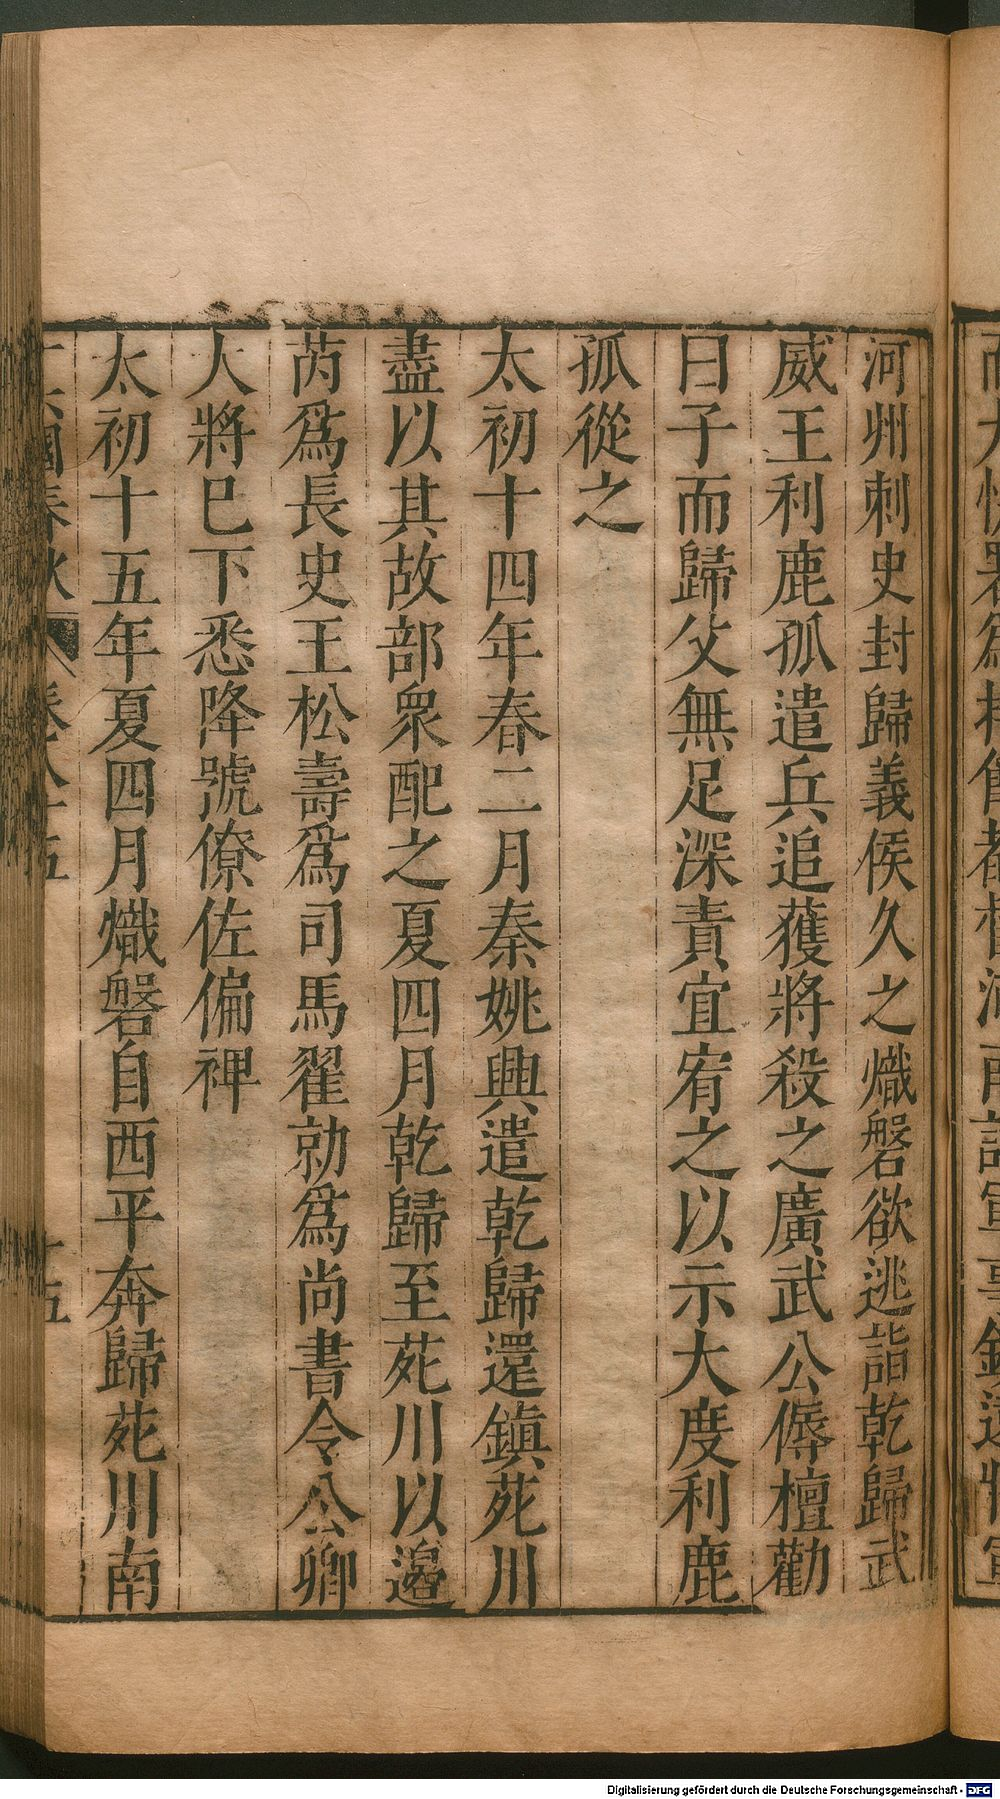 河州刺史封歸義侯久之熾磐欲逃詣乾歸武
威王利鹿孤遣兵追獲將殺之廣武公傉檀勸
曰子而歸父無足深責宜宥之以示大度利鹿
孤從之
太初十四年春二月秦姚興遣乾歸還鎮苑川
盡以其故部衆配之夏四月乾歸至苑川以邊
芮爲長史王松壽爲司馬翟勍爲尚書令公卿
大將已下悉降號僚佐偏裨
太初十五年夏四月熾磐自西平奔歸苑川南
十六國春秋 卷八十五 十五
Digitalisierung gefördert durch die Deutsche Forschungsgemeinschaft - DFG